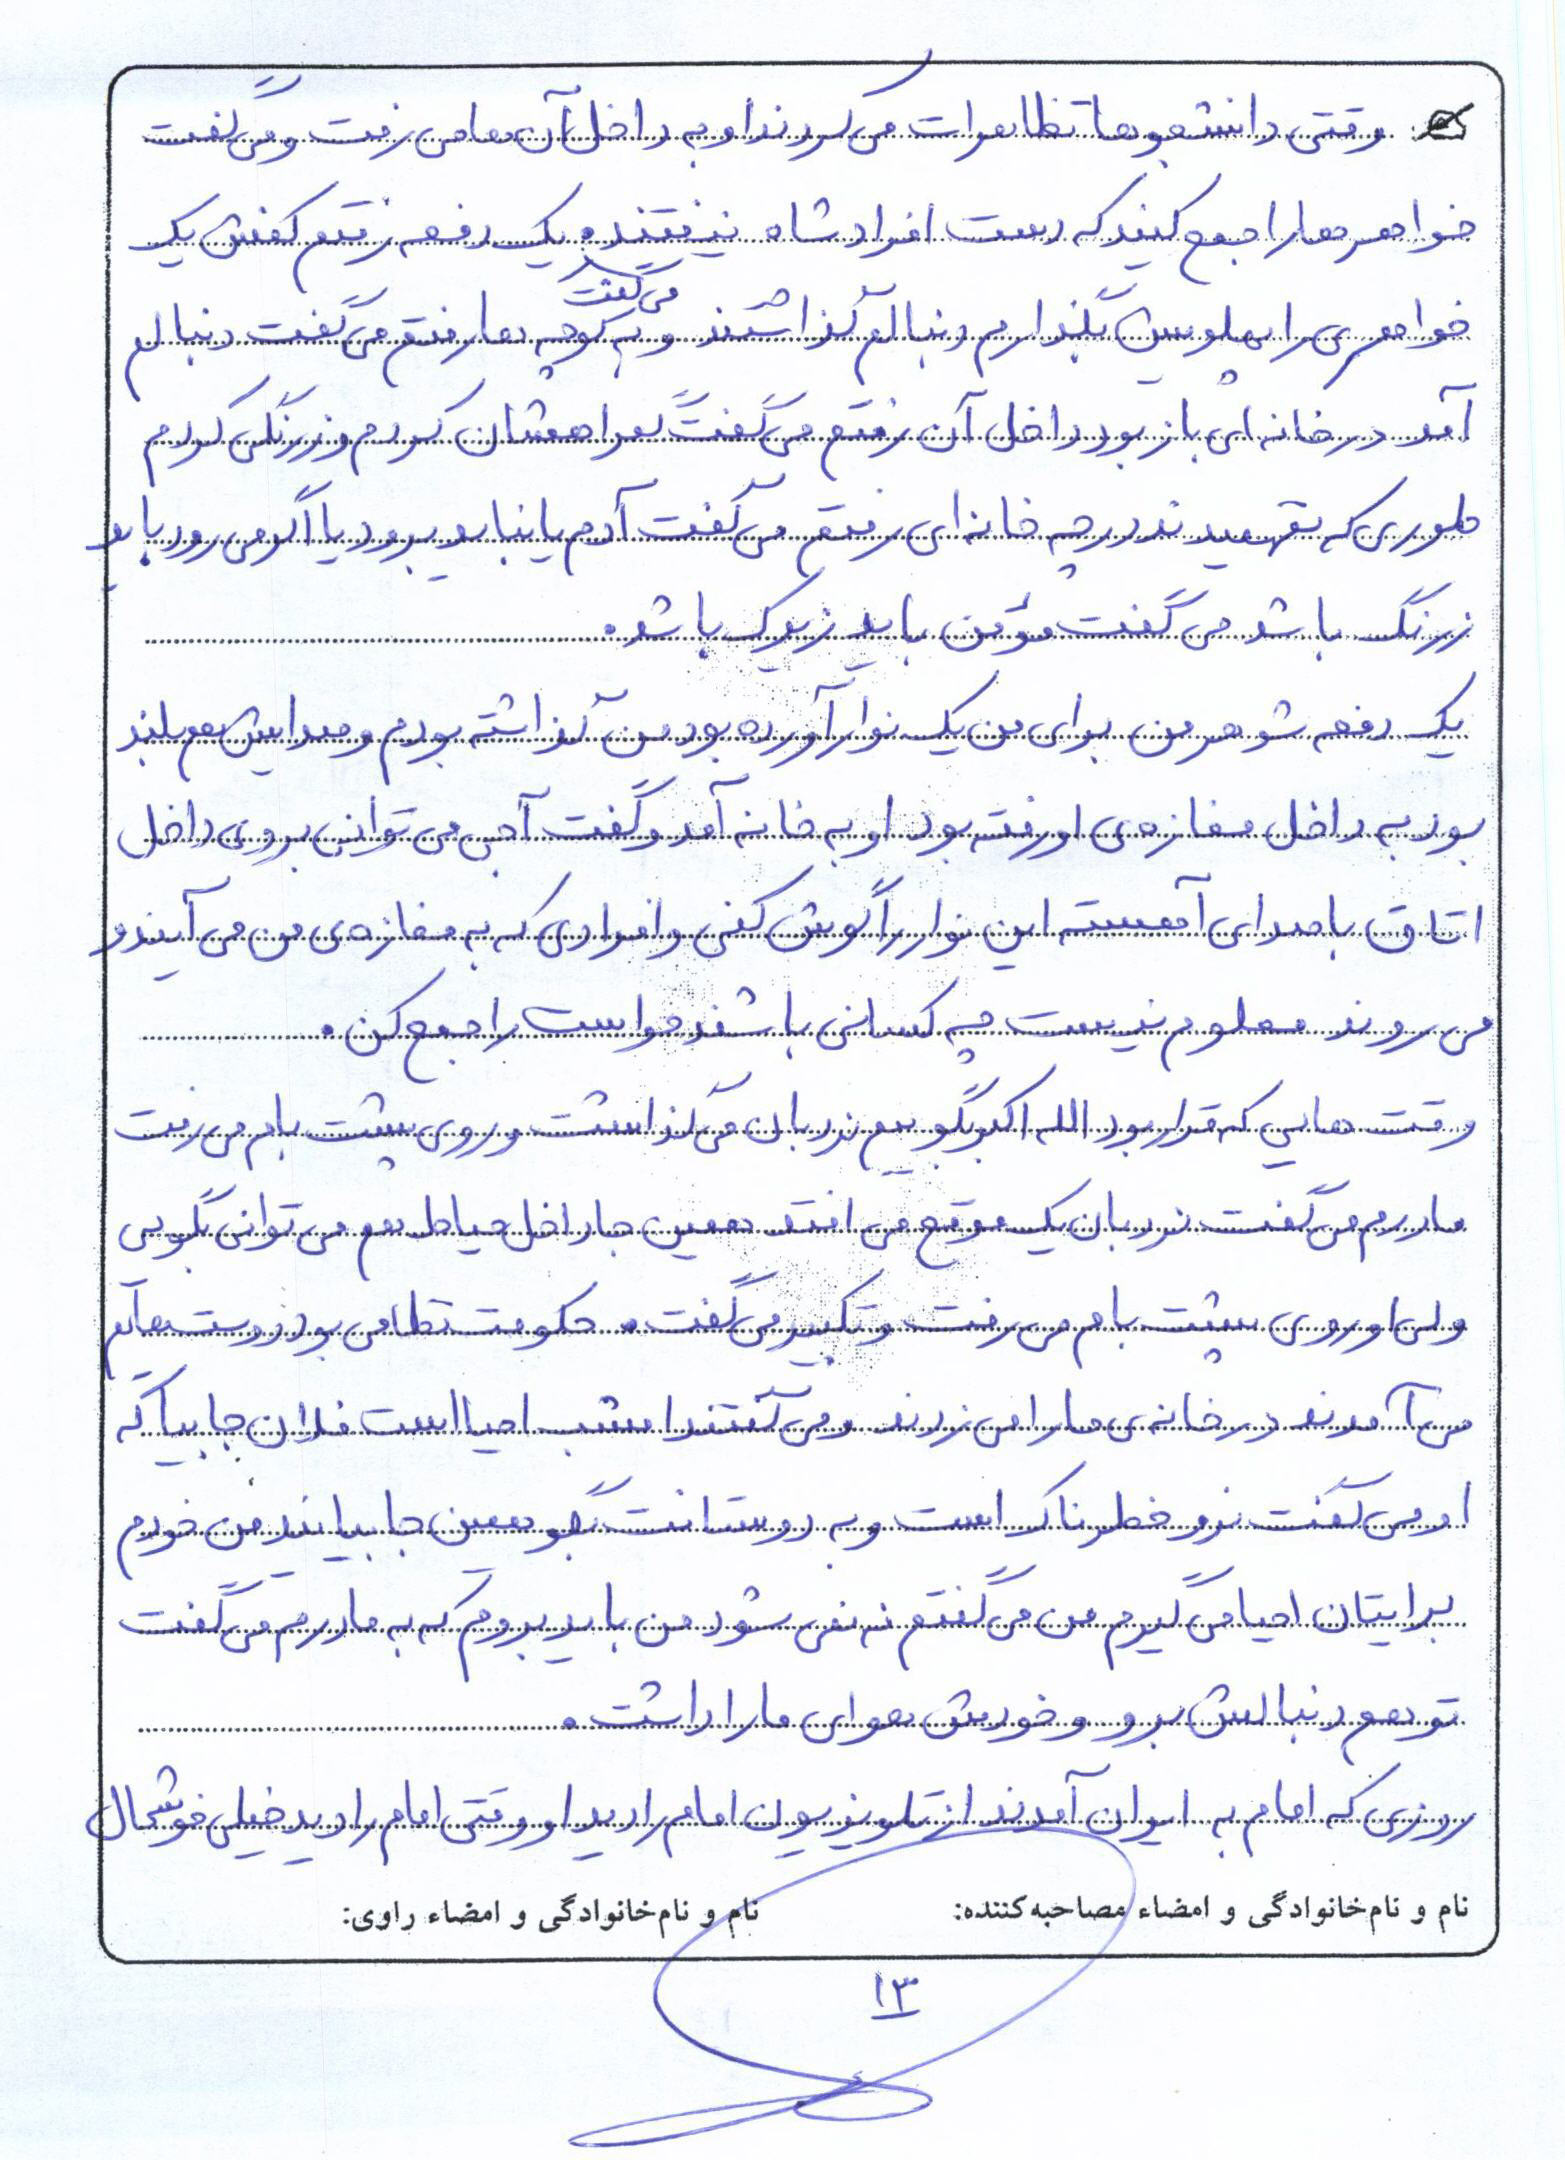 وقتی دانشجوها تظاهرات می کردند او به داخل آن ها می رفت و می گفت
خواهرها را جمع کنید که دست افراد شاه نیفتند می گفت یک دفعه رفتم کفش یک
خواهری را بپلویش بگذارم دنبالم گذاشتند و به کوچه ها رفتم می گفت دنبالم
آمد در خانه ای باز بود داخل آن رفتم می گفت گمراهشان کردم و زرنگی کردم
طوری که نفهمیدند در چه خانه ای رفتم می گفت آدم یا نباید برود یا اگر می رود باید
زرنگ باشد می گفت مؤمن باید زیرک باشد.
یک دفعه شوهر من برای من یک نوار آورده بود من گذاشته بودم و صدایش هم بلند
بود به داخل مغازه ی او رفته بود او به خانه آمد و گفت آجی می توانی بروی داخل
اتاق با صدای آهسته این نوار را گوش کنی و افرادی که به مغازه ی من می آیند و
می روند معلوم نیست چه کسانی باشند حواست را جمع کن.
وقت هایی که قرار بود الله اکبر بگوییم نردبان می گذاشت و روی پشت بام می رفت
مادرم می گفت نردبان یک موقع می افتد همین جا داخل حیاط هم می توانی بگویی
ولی او روی پشت بام می رفت و تکبیر می گفت. حکومت نظامی بود دوست هایم
می آمدند در خانه ی ما را می زدند و می گفتند امشب احیا است فلان جا بیا که
او می گفت نرو خطرناک است و به دوستانت بگو همین جا بیایند من خودم
برایتان احیا می گیرم من می گفتم نه نمی شود من باید بروم که به مادرم می گفت
تو هم دنبالش برو و خودش هوای ما را داشت.
روزی که امام به ایران آمدند از تلویزیون امام را دید او وقتی امام را دید خیلی خوشحال
نام و نام‌خانوادگی و امضاء مصاحبه‌کننده: نام و نام‌خانوادگی و امضاء راوی:
۱۳